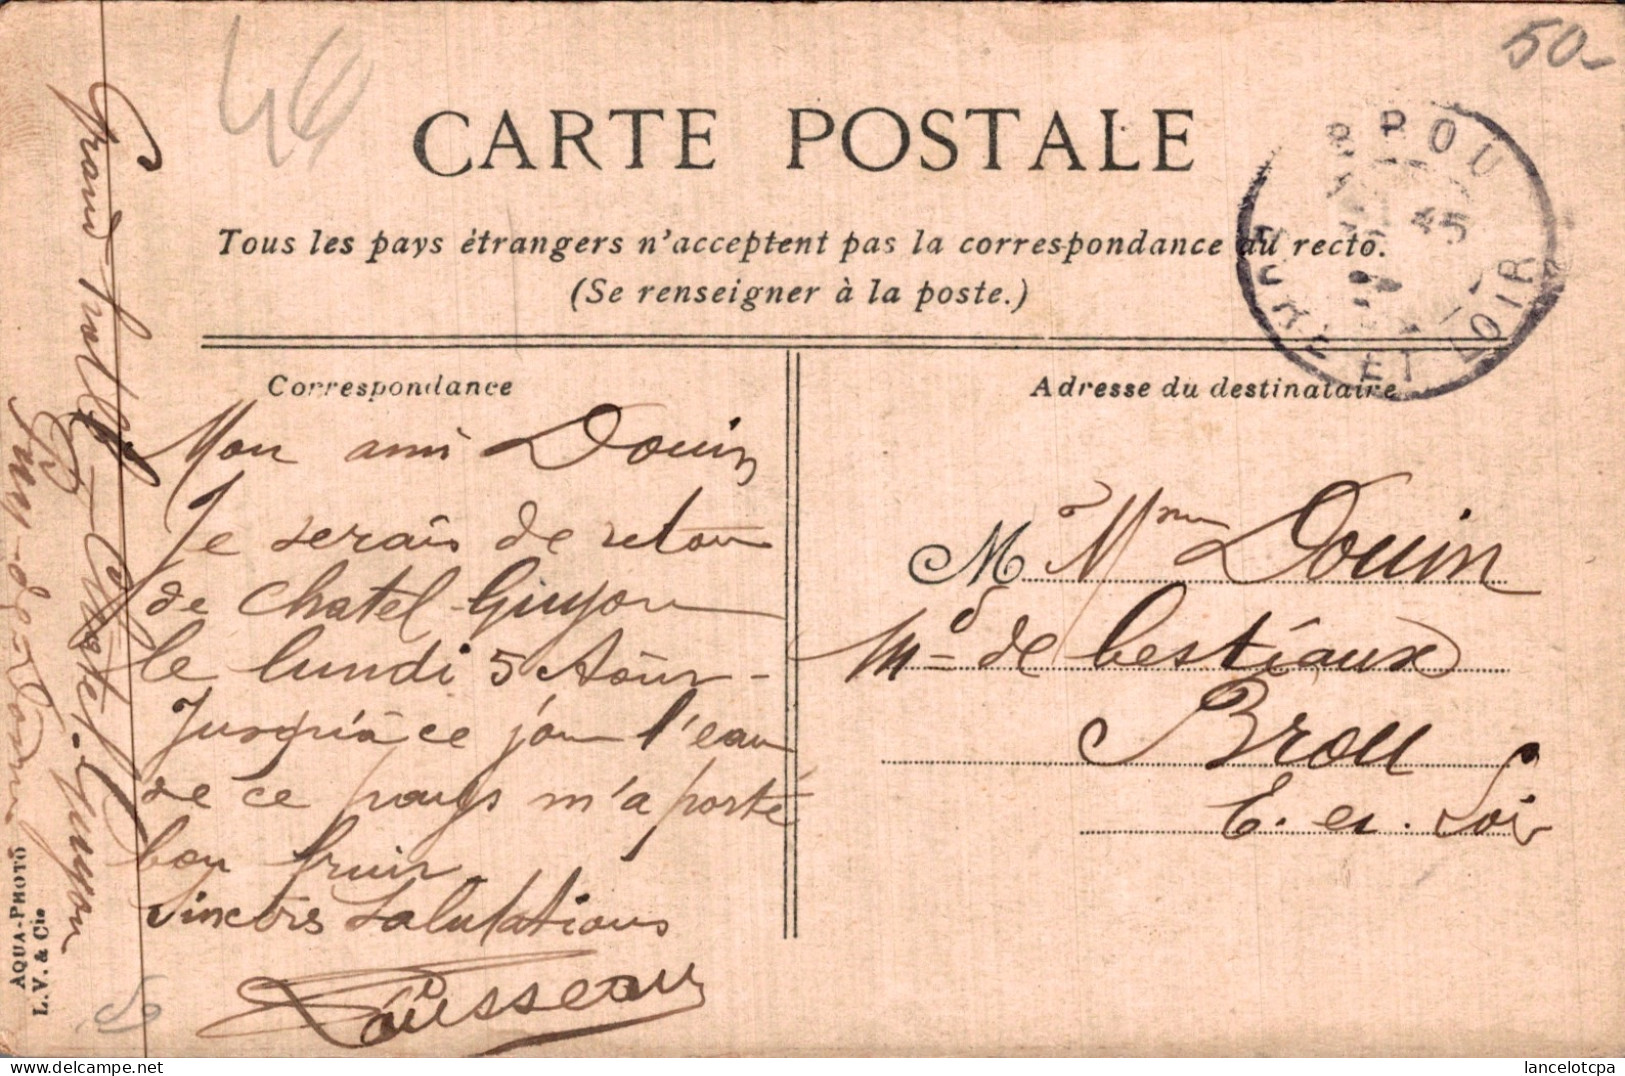 50-
CARTE POSTALE
Tous les pays étrangers n'acceptent pas la correspondance au recto.
(Se renseigner à la poste.)
BROU
EURE ET LOIR
Correspondance
Mon ami Douin
Je serais de retour
de Chatel-Guyon
le lundi 5 Aout -
Jusqu'à ce jour l'eau
de ce pays m'a porté
bon fruit
Sincères Salutations
Adresse du destinataire
M. Mme Douin
Md de bestiaux
Brou
E. et. Loir
Grand hotel
Chatel-Guyon
Puy-de-Dome
AQUA-PHOTO
L.V. & Cie
lancelotcpa